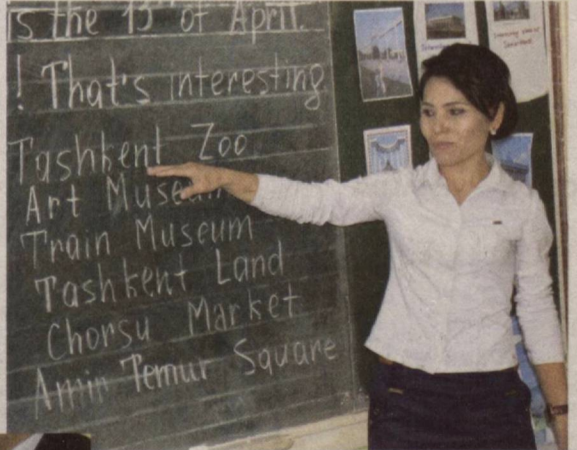 is the 13th of April.
! That's interesting.
Tashkent Zoo
Art Museum
Train Museum
Tashkent Land
Chorsu Market
Amir Temur Square